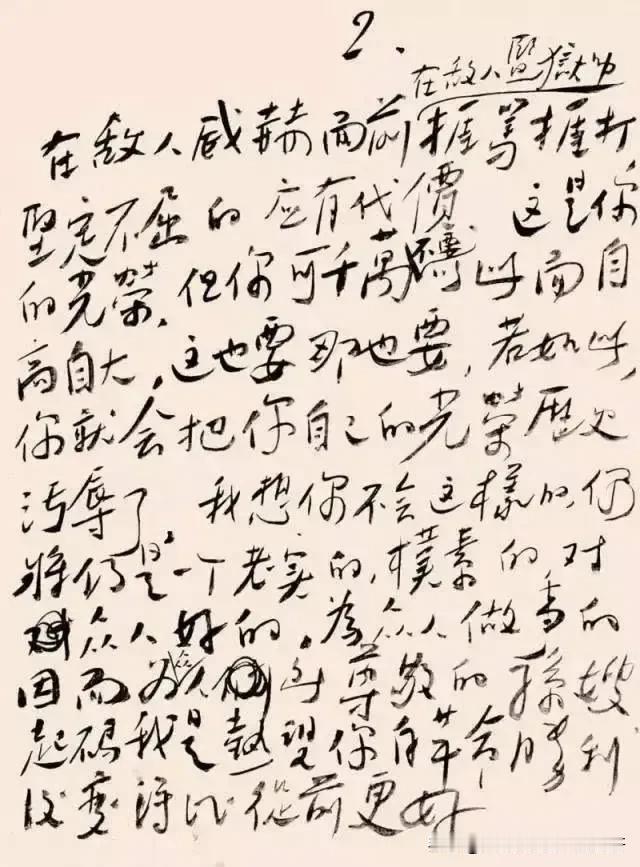 2.
在敌人监獄中
在敌人威赫面前捱骂捱打
堅定不屈的应有代價 这是你
的光荣，但你可千萬 此而自
高自大，这也要那也要，若如此，
你就会把你自己的光荣歷史
污辱了，我想你不会这樣的，仍
將仍是一个老实的，樸素的对
众人好的，為众人做事的
因而 众人 所尊敬的孫嫂
起码我是熱望你自革命勝利
後变得比從前更好